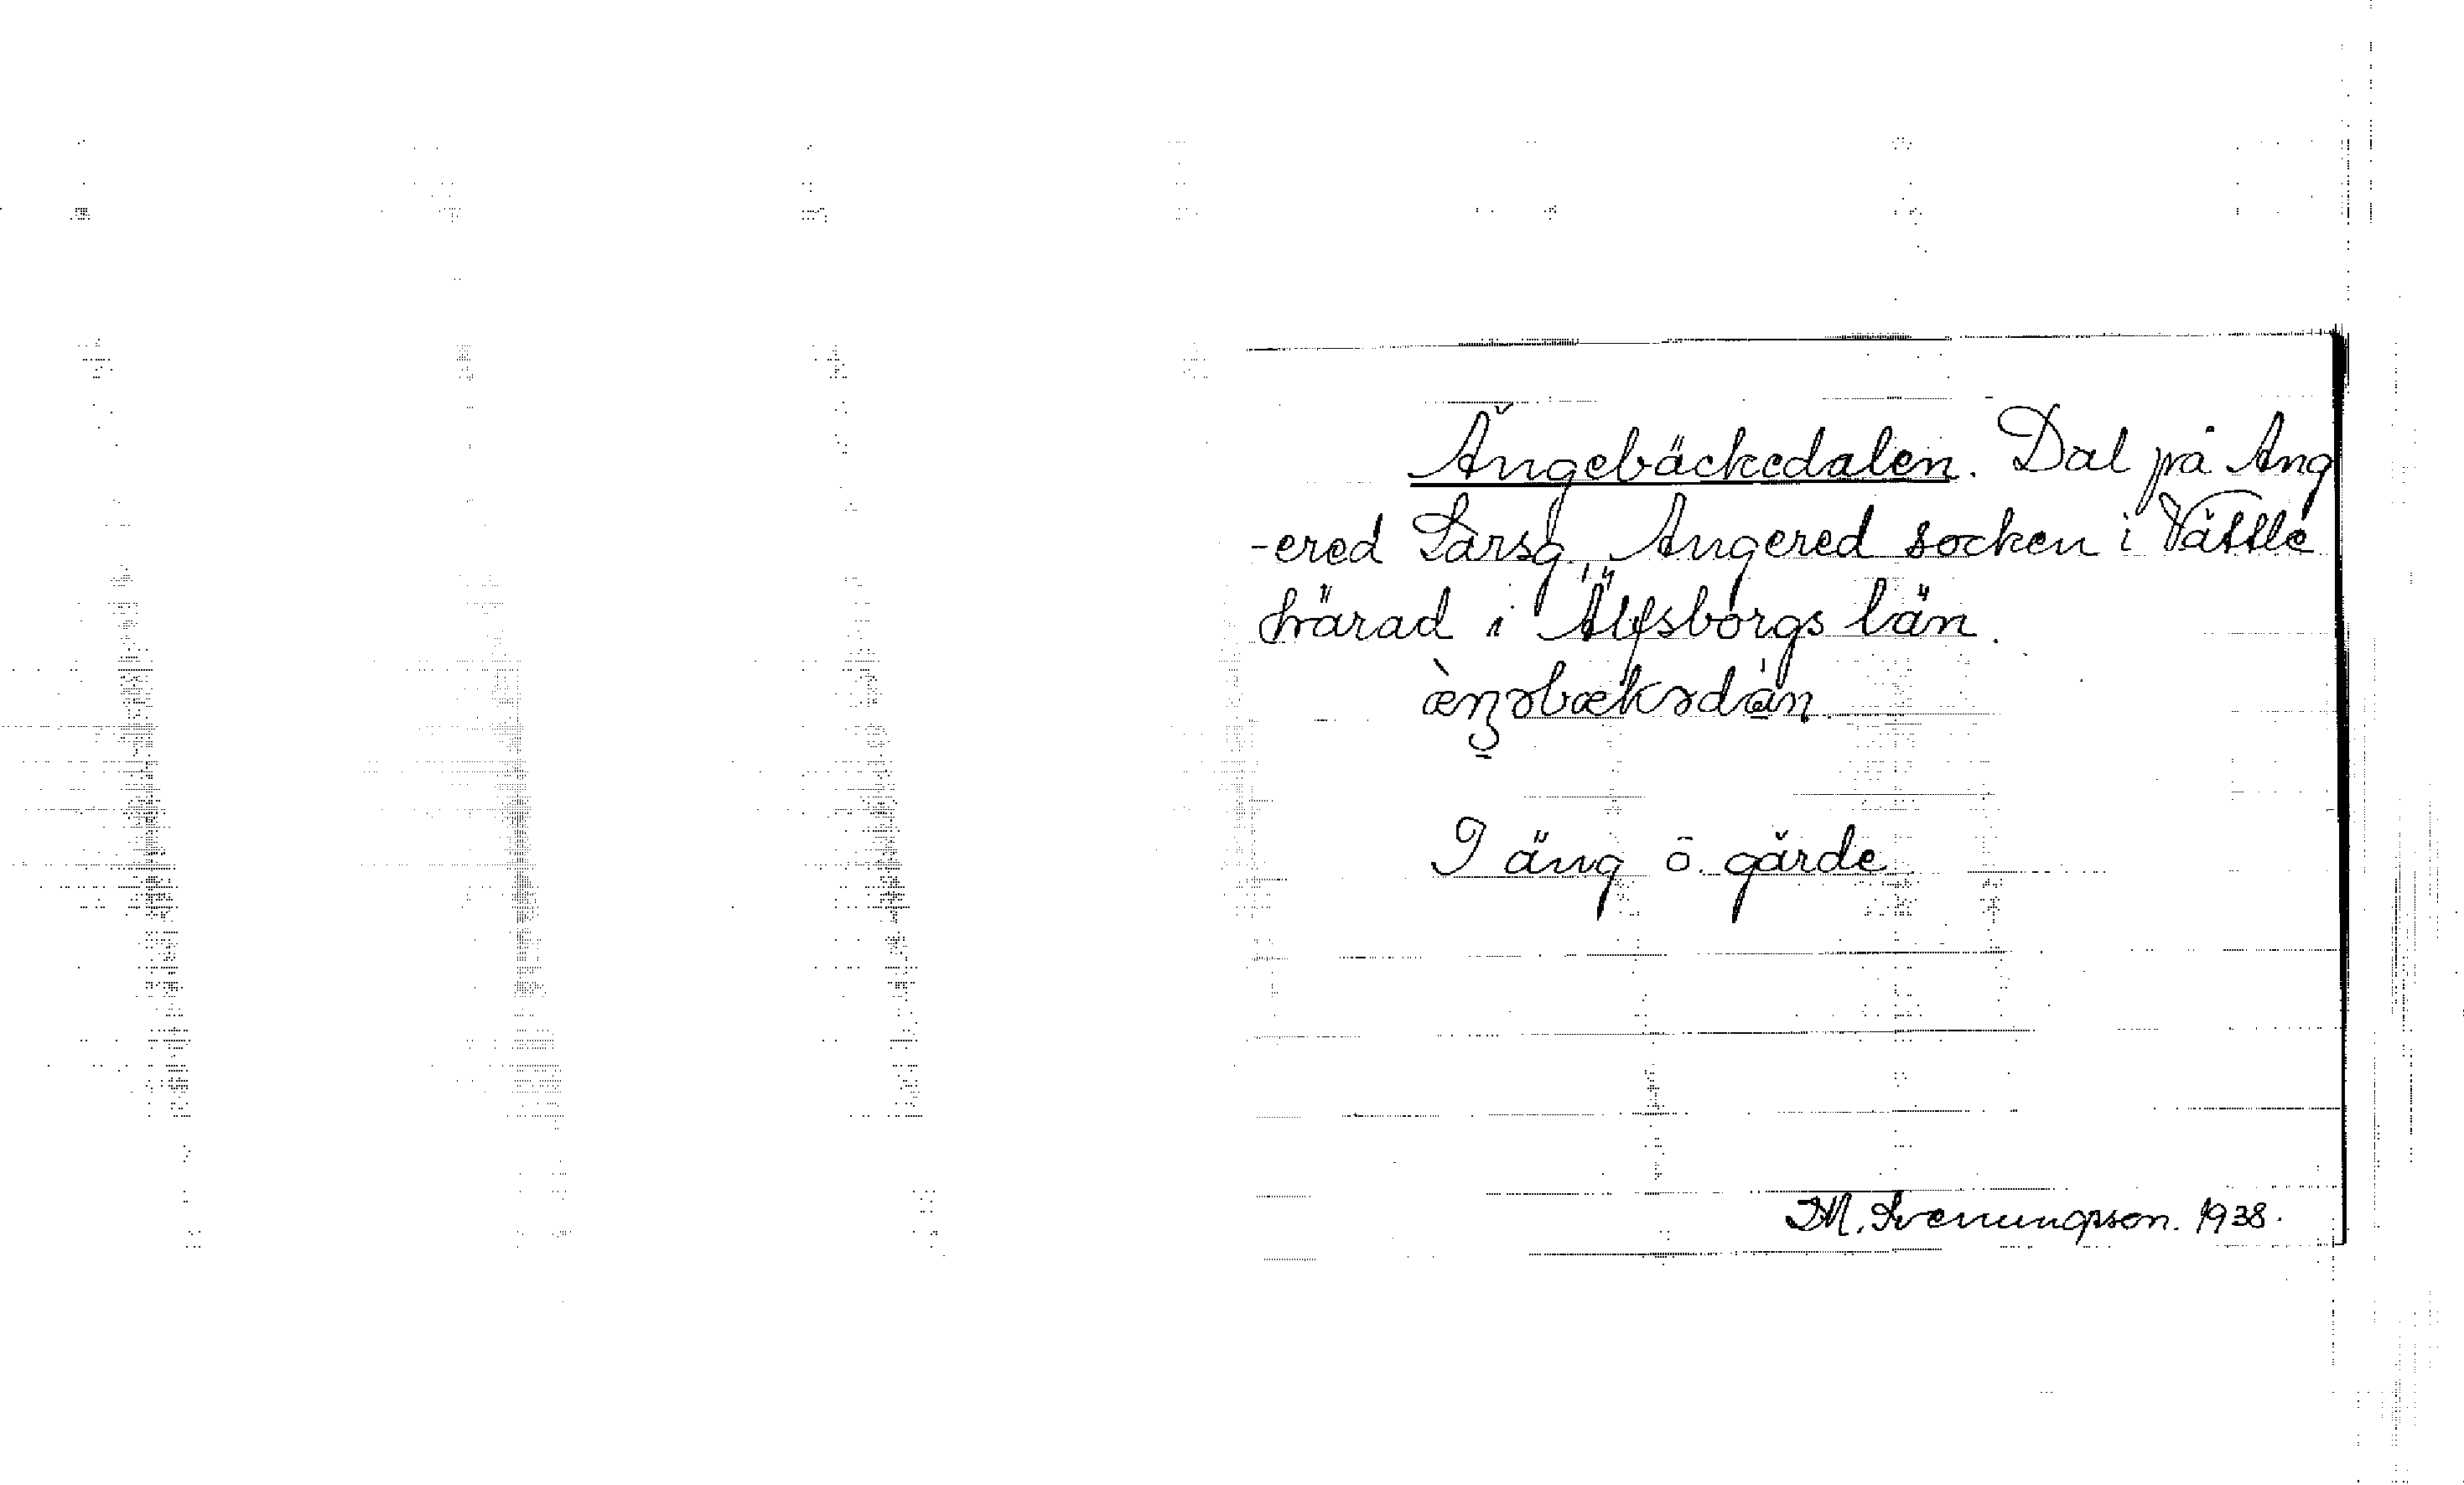 Ängebäckedalen. Dal på Ang
-ered Larsg. Angered socken i Vättle
härad i Älfsborgs län.
I äng o. gärde
M. Svenungsson. 1938.